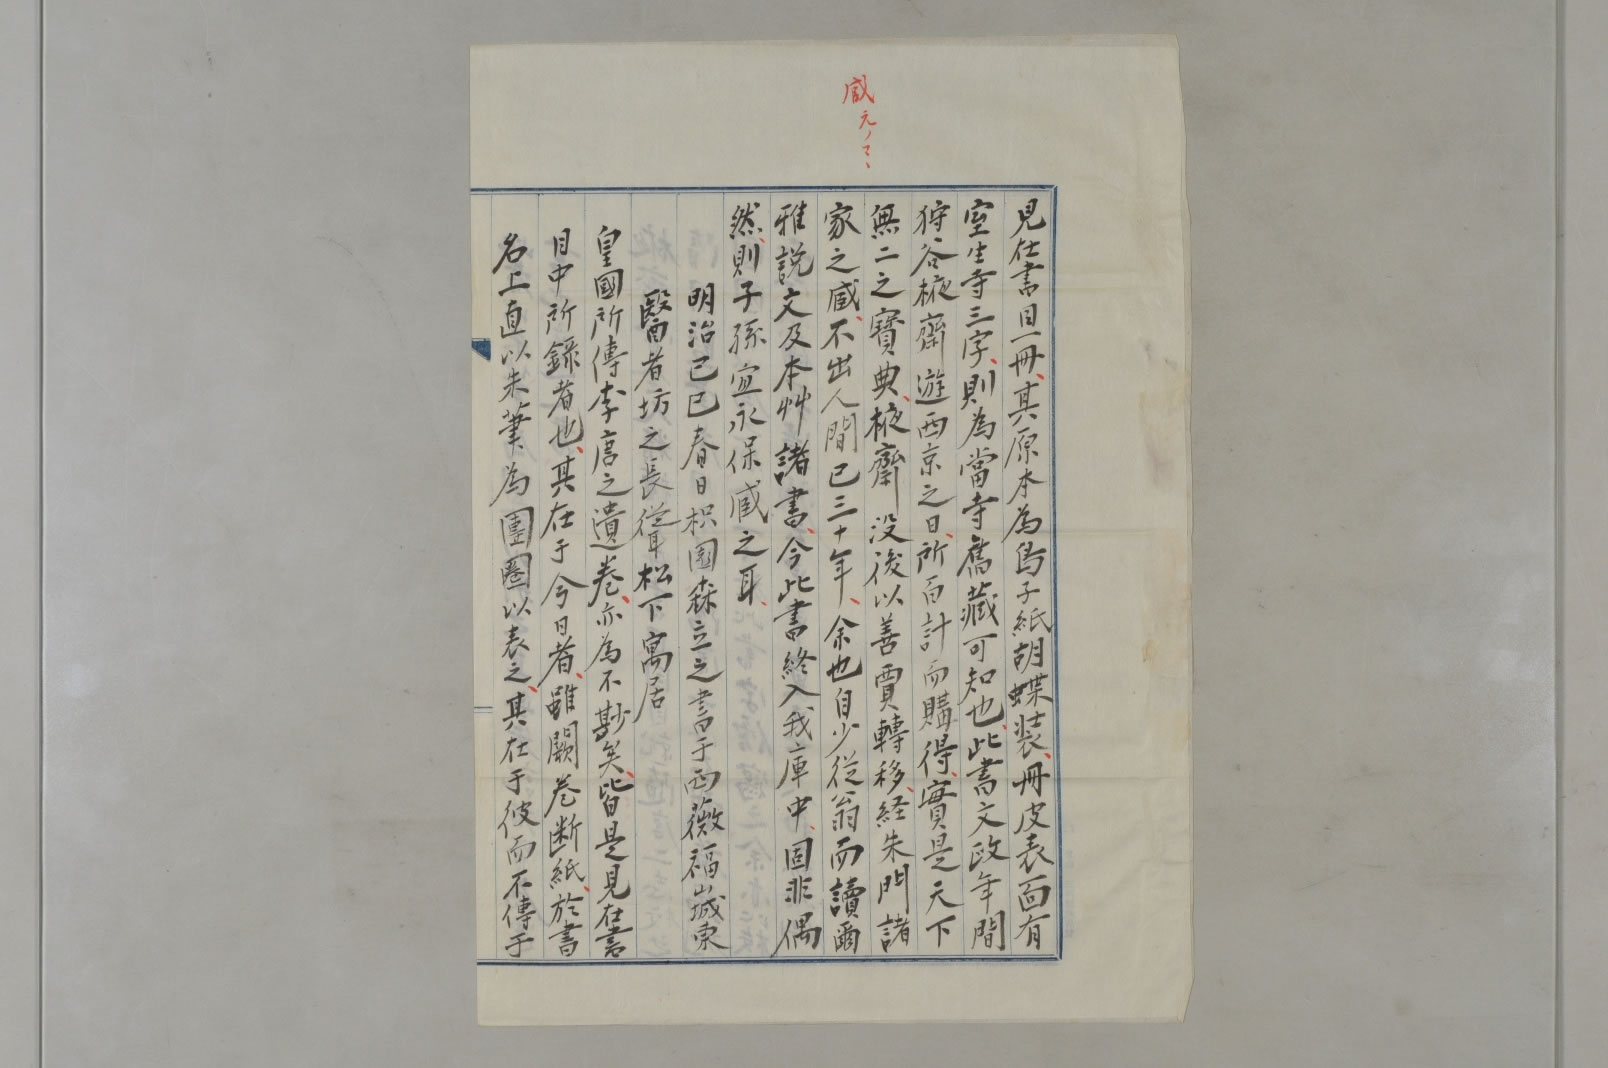 蔵元ノマヽ
見在書目一冊、其原本為鳥子紙胡蝶装、冊皮表面有
室生寺三字、則為當寺舊藏可知也、此書文政年間
狩谷棭齋遊西京之日、所百計而購得、實是天下
無二之寶典、棭齋没後以善賈轉移、経朱門諸
家之蔵、不出人間已三十年、余也自少従翁而讀爾
雅説文及本艸諸書、今此書終入我庫中、固非偶
然、則子孫宜永保蔵之耳、
明治己巳春日枳園森立之書于西薇福城東
醫者坊之長聳松下寓居
皇國所傳李唐之遺巻、亦為不尠矣、皆是見在書
目中所録者也、其在于今日者、雖闕巻断紙、於書
名上直以朱筆為團圈以表之、其在于彼而不傳于